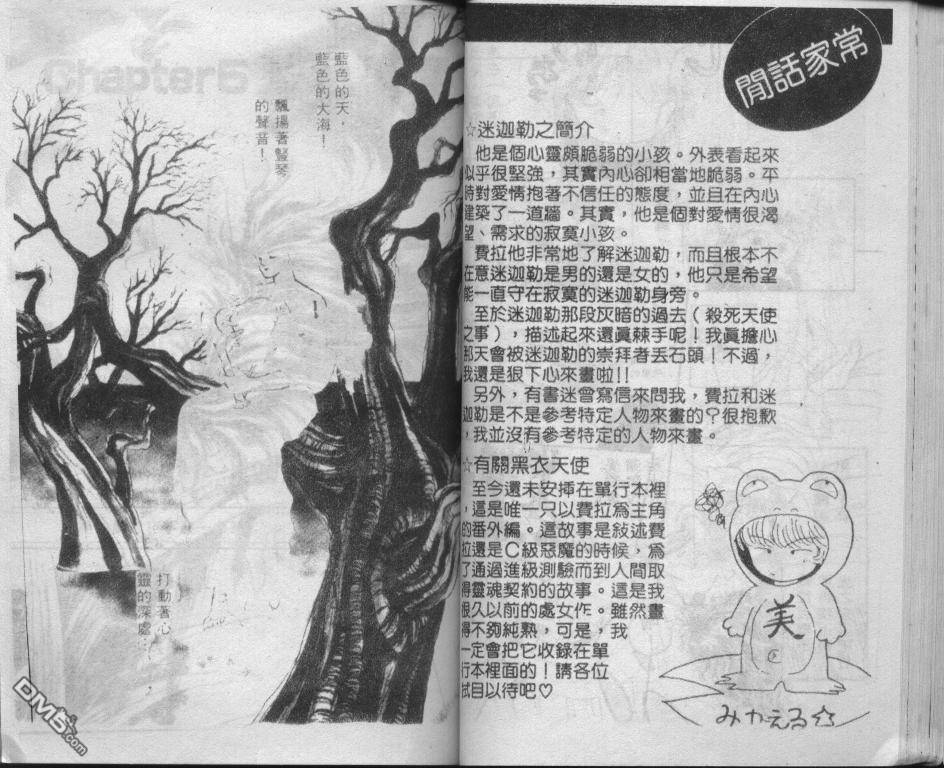 Chapter5
藍色的天，
藍色的大海！
飄揚著豎琴
的聲音！
打動著心
靈的深處…
DM5.com
閒話家常
☆迷迦勒之簡介
他是個心靈頗脆弱的小孩。外表看起來
似乎很堅強，其實內心卻相當地脆弱。平
時對愛情抱著不信任的態度，並且在內心
建築了一道牆。其實，他是個對愛情很渴
望、需求的寂寞小孩。
費拉他非常地了解迷迦勒，而且根本不
在意迷迦勒是男的還是女的，他只是希望
能一直守在寂寞的迷迦勒身旁。
至於迷迦勒那段灰暗的過去（殺死天使
之事），描述起來還眞棘手呢！我眞擔心
那天會被迷迦勒的崇拜者丟石頭！不過，
我還是狠下心來畫啦!!
另外，有書迷曾寫信來問我，費拉和迷
迦勒是不是參考特定人物來畫的？很抱歉
，我並沒有參考特定的人物來畫。
☆有關黑衣天使
至今還未安揷在單行本裡
，這是唯一只以費拉爲主角
的番外編。這故事是敍述費
拉還是C級惡魔的時候，爲
了通過進級測驗而到人間取
得靈魂契約的故事。這是我
很久以前的處女作。雖然畫
得不夠純熟，可是，我
一定會把它收錄在單
行本裡面的！請各位
拭目以待吧♡
美
みかえる☆